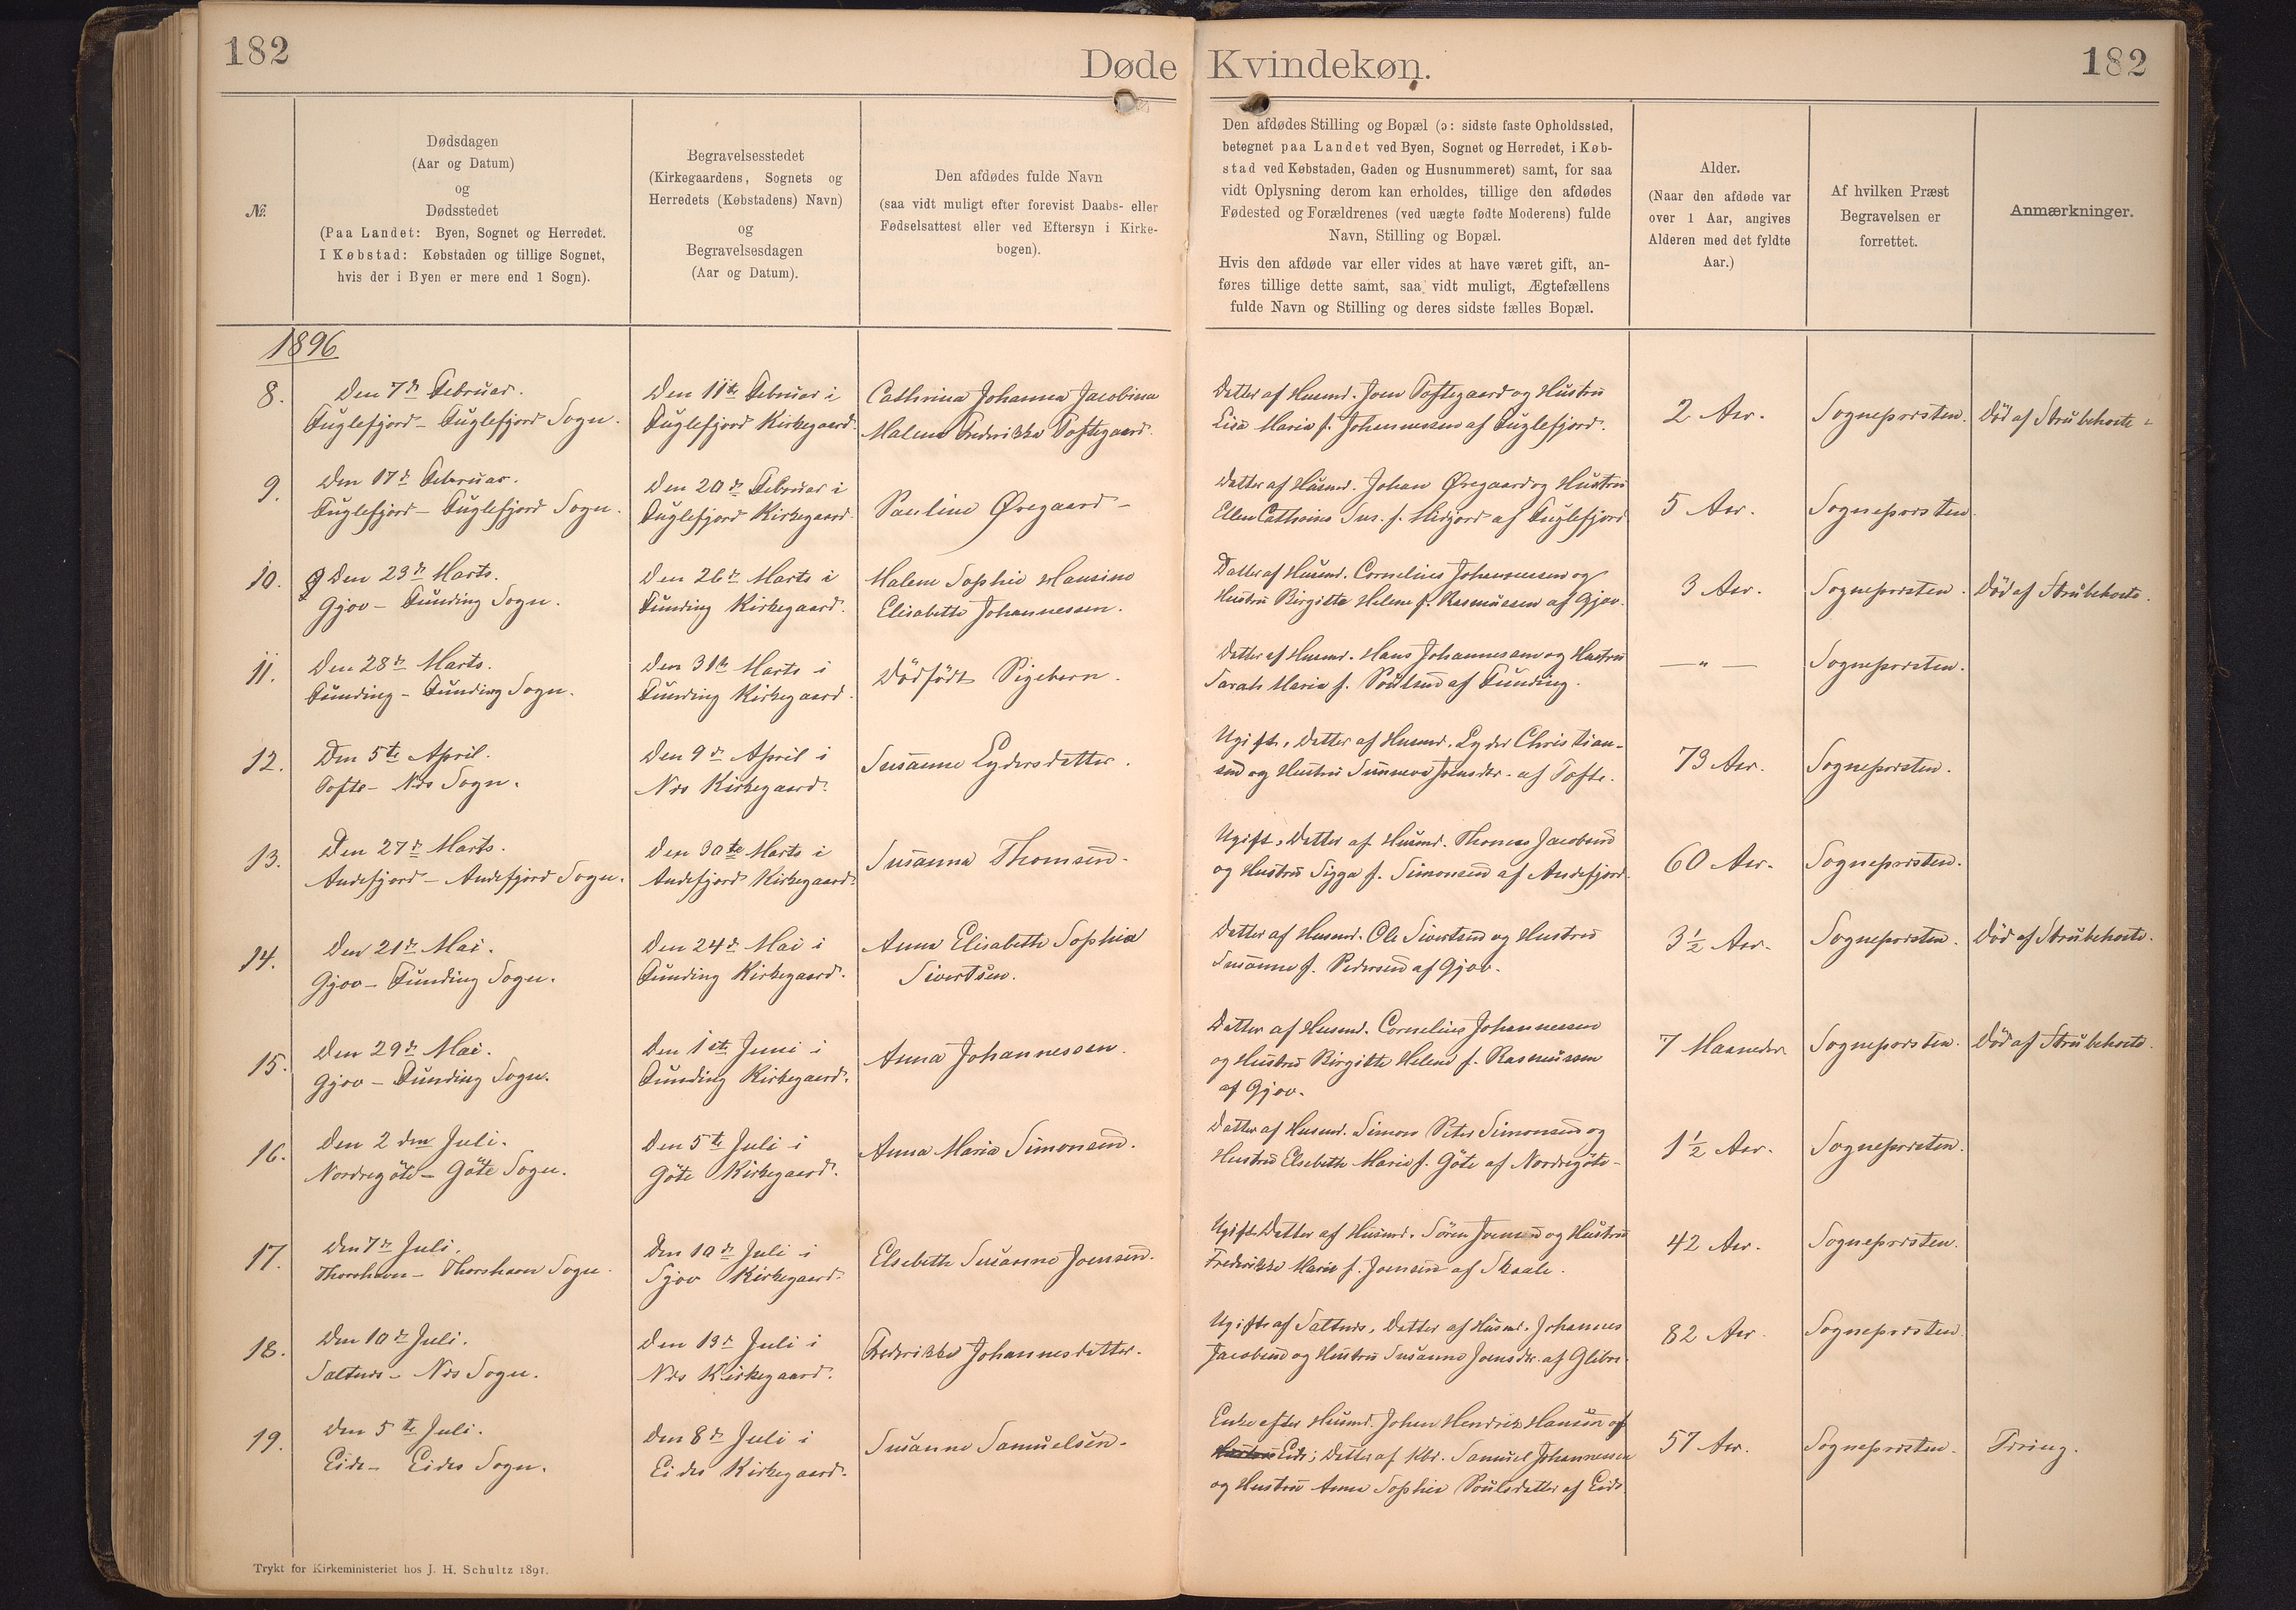 182
Døde Kvindekøn.
182
№.
Dødsdagen
(Aar og Datum)
og
Dødsstedet
(Paa Landet: Byen, Sognet og Herredet.
I Købstad: Købstaden og tillige Sognet,
hvis der i Byen er mere end 1 Sogn).
Begravelsesstedet
(Kirkegaardens, Sognets og
Herredets (Købstadens) Navn)
og
Begravelsesdagen
(Aar og Datum).
Den afdødes fulde Navn
(saa vidt muligt efter forevist Daabs- eller
Fødselsattest eller ved Eftersyn i Kirke-
bogen).
Den afdødes Stilling og Bopæl (ɔ: sidste faste Opholdssted,
betegnet paa Landet ved Byen, Sognet og Herredet, i Køb-
stad ved Købstaden, Gaden og Husnummeret) samt, for saa
vidt Oplysning derom kan erholdes, tillige den afdødes
Fødested og Forældrenes (ved uægte fødte Moderens) fulde
Navn, Stilling og Bopæl.
Hvis den afdøde var eller vides at have været gift, an-
føres tillige dette samt, saa vidt muligt, Ægtefællens
fulde Navn og Stilling og deres sidste fælles Bopæl.
Alder.
(Naar den afdøde var
over 1 Aar, angives
Alderen med det fyldte
Aar.)
Af hvilken Præst
Begravelsen er
forrettet.
Anmærkninger.
1896
8.
Den 7de Februar.
Fuglefjord - Fuglefjord Sogn.
Den 11te Februar i
Fuglefjord Kirkegaard.
Cathrina Johanna Jacobina
Malene Frederikke Toftegaard.
Datter af Husmd. Joen Toftegaard og Hustru
Lisa Maria f. Johannessen af Fuglefjord.
2 Aar.
Sognepræsten.
Död af Strubehoste.
9.
Den 17de Februar.
Fuglefjord - Fuglefjord Sogn.
Den 20de Februar i
Fuglefjord Kirkegaard.
Pauline Øregaard -
Datter af Husmd. Johan Øregaard og Hustru
Ellen Cathrine Sus. f. Midjord af Fuglefjord
5 Aar.
Sognepræsten.
10.
Den 23de Marts.
Gjov - Funding Sogn.
Den 26de Marts i
Funding Kirkegaard.
Malene Sophie Hansine
Elisabeth Johannessen.
Datter af Husmd. Cornelius Johannessen og
Hustru Birgitte Helene f. Rasmussen af Gjov.
3 Aar.
Sognepræsten.
Död af Strubehoste.
11.
Den 28de Marts.
Funding - Funding Sogn.
Den 31te Marts i
Funding Kirkegaard.
Dödfödt Pigebarn.
Datter af Husmd. Hans Johannesen og Hustru
Sarah Maria f. Poulsen af Funding.
— " —
Sognepræsten.
12.
Den 5te April.
Tofte - Næs Sogn.
Den 9de April i
Næs Kirkegaard.
Susanne Lydersdatter.
Ugift, Datter af Husmd. Lyder Christian-
sen og Hustru Sunneva Joensdtr. af Tofte.
73 Aar.
Sognepræsten.
13.
Den 27de Marts.
Andefjord - Andefjord Sogn.
Den 30te Marts i
Andefjord Kirkegaard.
Susanna Thomsen.
Ugift, Datter af Husmd. Thomas Jacobsen
og Hustru Sigga f. Simonsen af Andefjord.
60 Aar.
Sognepræsten.
14.
Den 21de Mai.
Gjov - Funding Sogn.
Den 24de Mai i
Funding Kirkegaard.
Anna Elisabeth Sophia
Sivertsen.
Datter af Husmd. Ole Sivertsen og Hustru
Susanne f. Pedersen af Gjov.
3½ Aar.
Sognepræsten.
Död af Strubehoste.
15.
Den 29de Mai.
Gjov - Funding Sogn.
Den 1ste Juni i
Funding Kirkegaard.
Anna Johannessen.
Datter af Husmd. Cornelius Johannessen
og Hustru Birgitte Helene f. Rasmussen
af Gjov.
7 Maaneder
Sognepræsten.
Död af Strubehoste.
16.
Den 2den Juli.
Nordregöte - Göte Sogn.
Den 5te Juli i
Göte Kirkegaard.
Anna Maria Simonsen.
Datter af Husmd. Simon Peter Simonsen og
Hustru Elsebeth Marie f. Göte af Nordregöte -
1½ Aar.
Sognepræsten.
17.
Den 7de Juli.
Thorshavn - Thorshavn Sogn.
Den 10de Juli i
Sjov Kirkegaard.
Elsebeth Susanne Joensen.
Ugift. Datter af Husmd. Sören Joensen og Hustru
Frederikke Marie f. Joensen af Skaale.
42 Aar.
Sognepræsten.
18.
Den 10de Juli.
Saltnæs - Næs Sogn.
Den 13de Juli i
Næs Kirkegaard.
Frederikke Johannesdatter.
Ugift af Saltnæs, Datter af Husmd. Johannes
Jacobsen og Hustru Susanne Joensdtr. af Glibre.
82 Aar
Sognepræsten.
19.
Den 5te Juli.
Eide - Eides Sogn.
Den 8de Juli i
Eides Kirkegaard.
Susanne Samuelsen.
Enke efter Husmd. Johan Hendrik Hansen af
Eide; Datter af Kbr. Samuel Johannessen
og Hustru Anna Sophie Poulsdatter af Eide.
57 Aar.
Sognepræsten.
Tæring.
Trykt for Kirkeministeriet hos J. H. Schultz 1891.